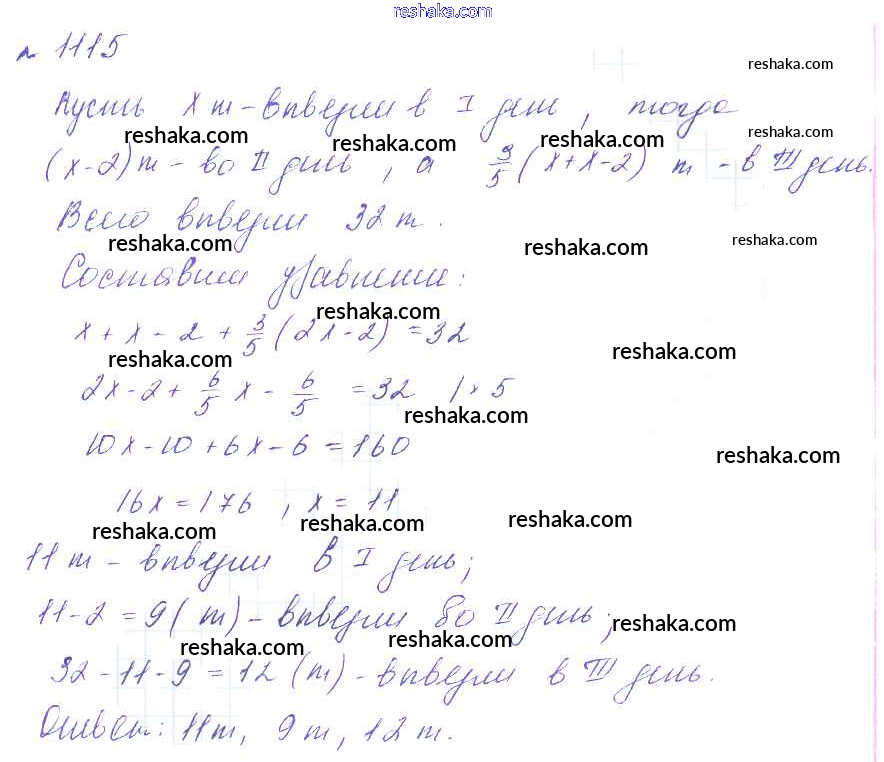 reshaka.com
№ 1115
reshaka.com
Пусть x т - вывезли в I день, тогда
reshaka.com reshaka.com reshaka.com reshaka.com
(x-2) т - во II день, а 3/5 (x+x-2) т - в III день.
Всего вывезли 32 т.
reshaka.com reshaka.com reshaka.com
Составим уравнение:
reshaka.com
x + x - 2 + 3/5 (2x-2) = 32
reshaka.com reshaka.com
2x-2+ 6/5 x - 6/5 = 32 /× 5
reshaka.com
10x-10+6x-6=160
reshaka.com
16x=176, x=11
reshaka.com reshaka.com reshaka.com
11 т - вывезли в I день;
11-2=9 (т) - вывезли во II день;
reshaka.com
reshaka.com reshaka.com
32-11-9=12 (т) - вывезли в III день.
Ответ: 11 т, 9 т, 12 т.